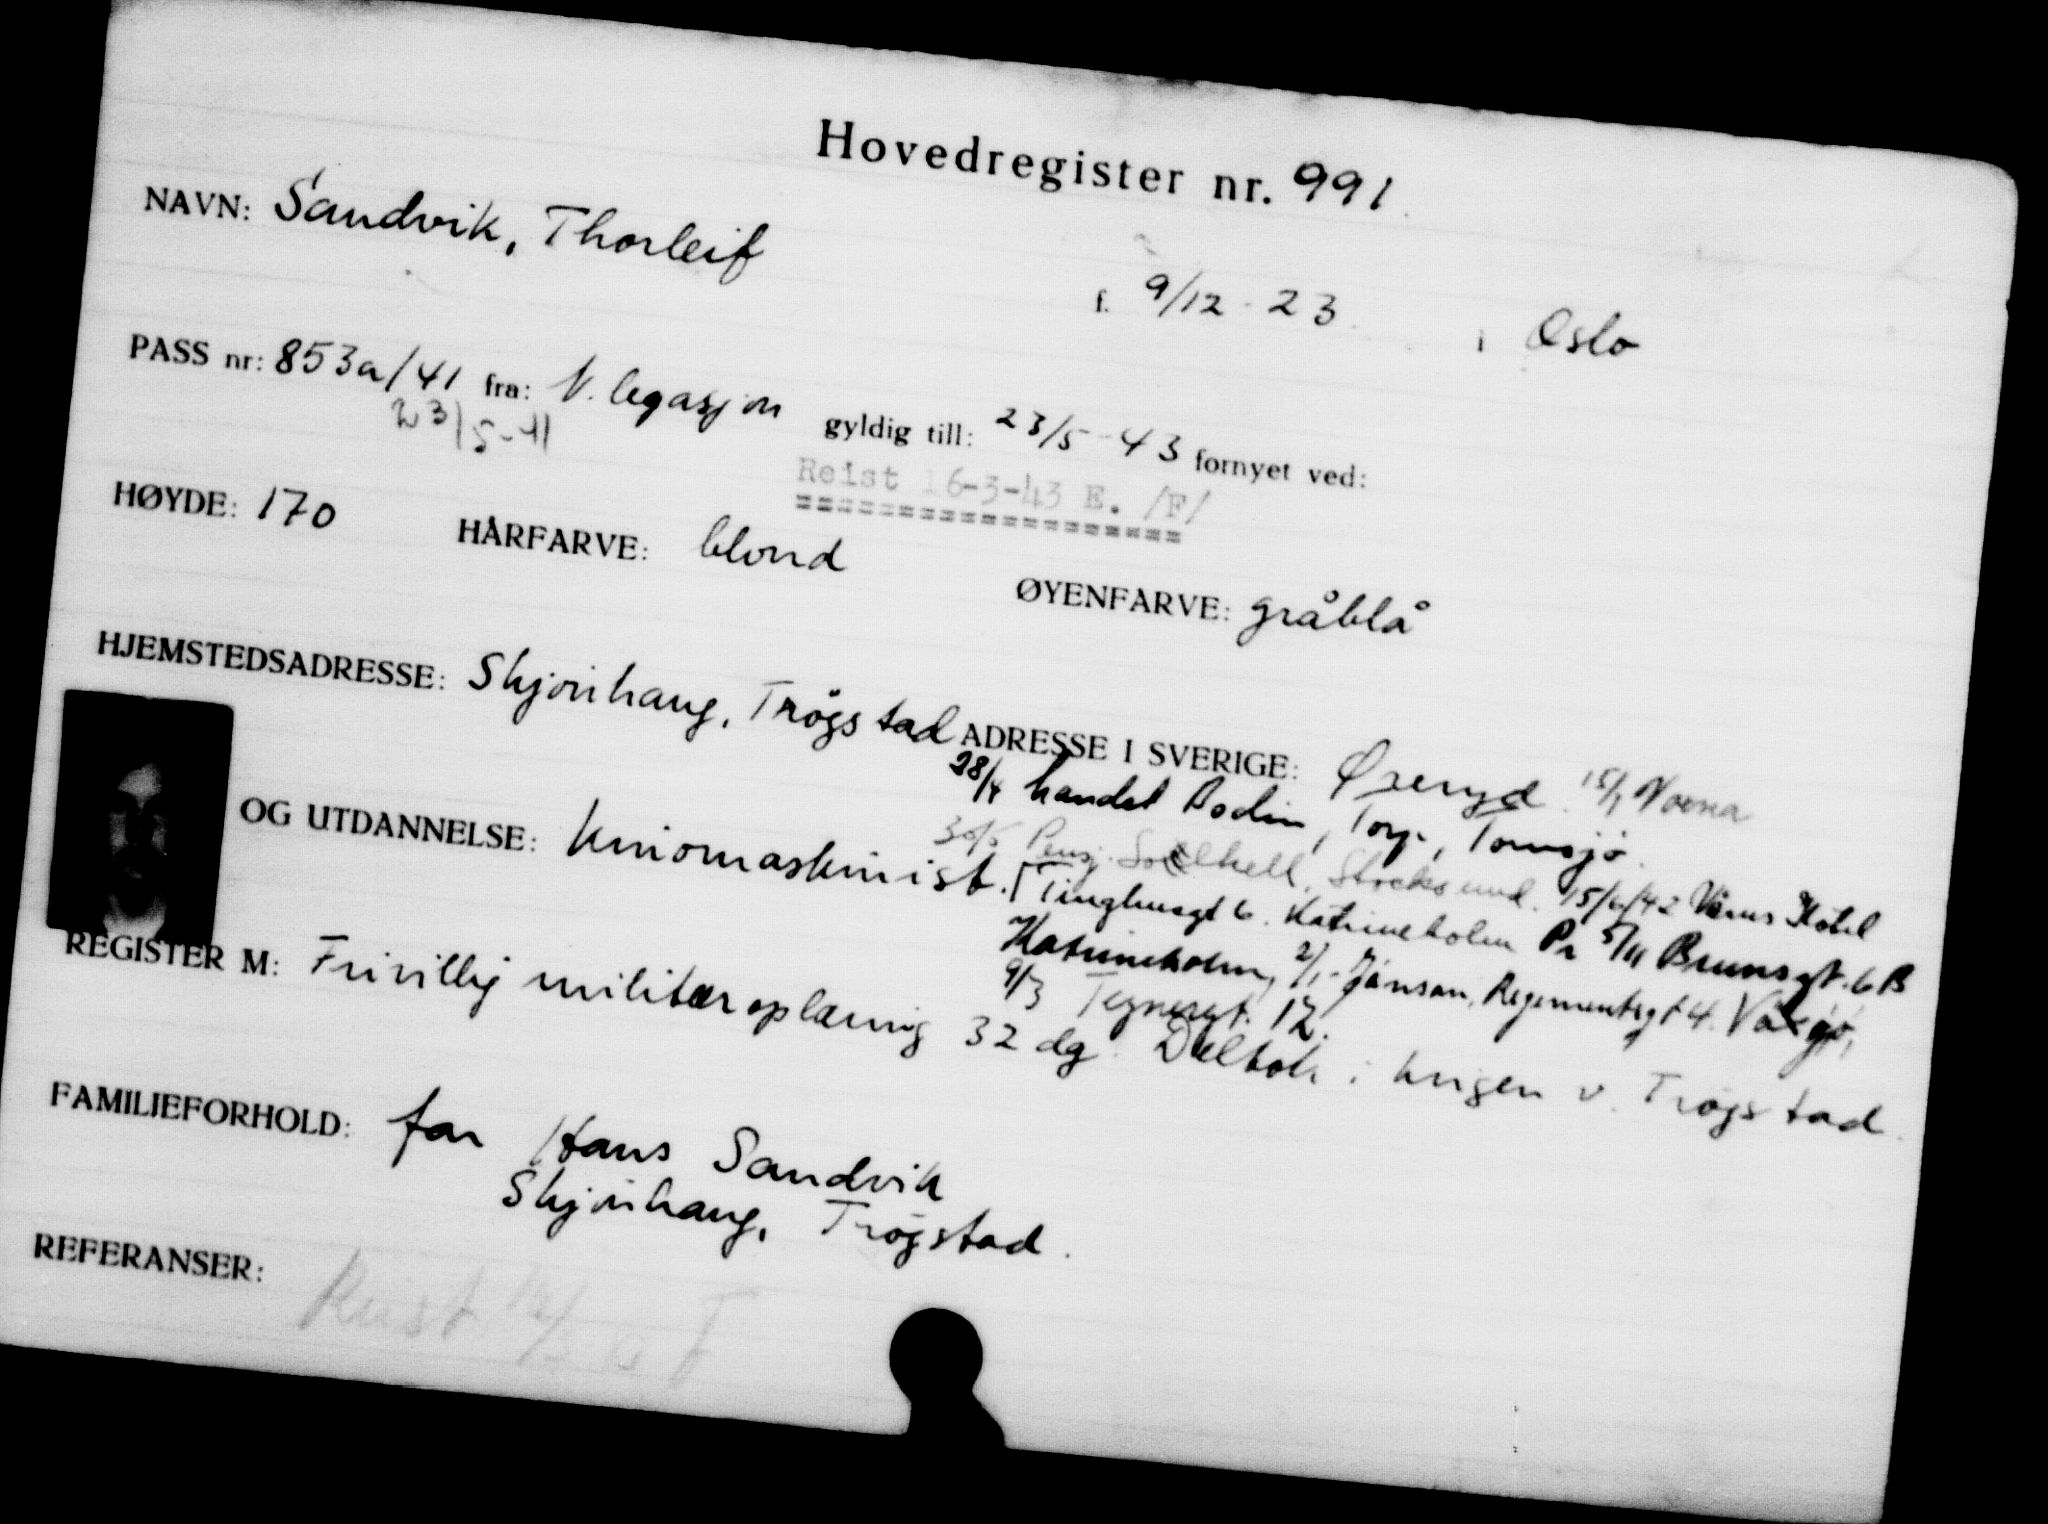 Hovedregister nr. 991
NAVN: Sandvik, Thorleif
f. 9/12 - 23 i Oslo
PASS nr: 853a/41 fra: N. legasjon gyldig till: 23/5 - 43 fornyet ved:
23/5-41
Reist 16-3-43 E. /F/
HØYDE: 170 HÅRFARVE: blond ØYENFARVE: gråblå
HJEMSTEDSADRESSE: Skjønhaug, Trøgstad ADRESSE I SVERIGE: Øreryd 15/1 Norra
28/4 Torp, Tomsjö.
OG UTDANNELSE: Kinomaskinist.
30/5 Pensj. Solhell, Stocksund. 15/6/42 Hotel
Tinghusgt 6. Katrineholm Pr 5/11 Brunsgt. 6 B
Katrineholm, 2/1- Jánson, Regementsgt 4. Växjø,
9/3 Tegnergt. 12.
REGISTER M: Frivillig militæroplæring 32 dg. Deltok i krigen v. Trøgstad.
FAMILIEFORHOLD: far Hans Sandvik
Skjønhaug, Trøgstad.
REFERANSER:
Reist F